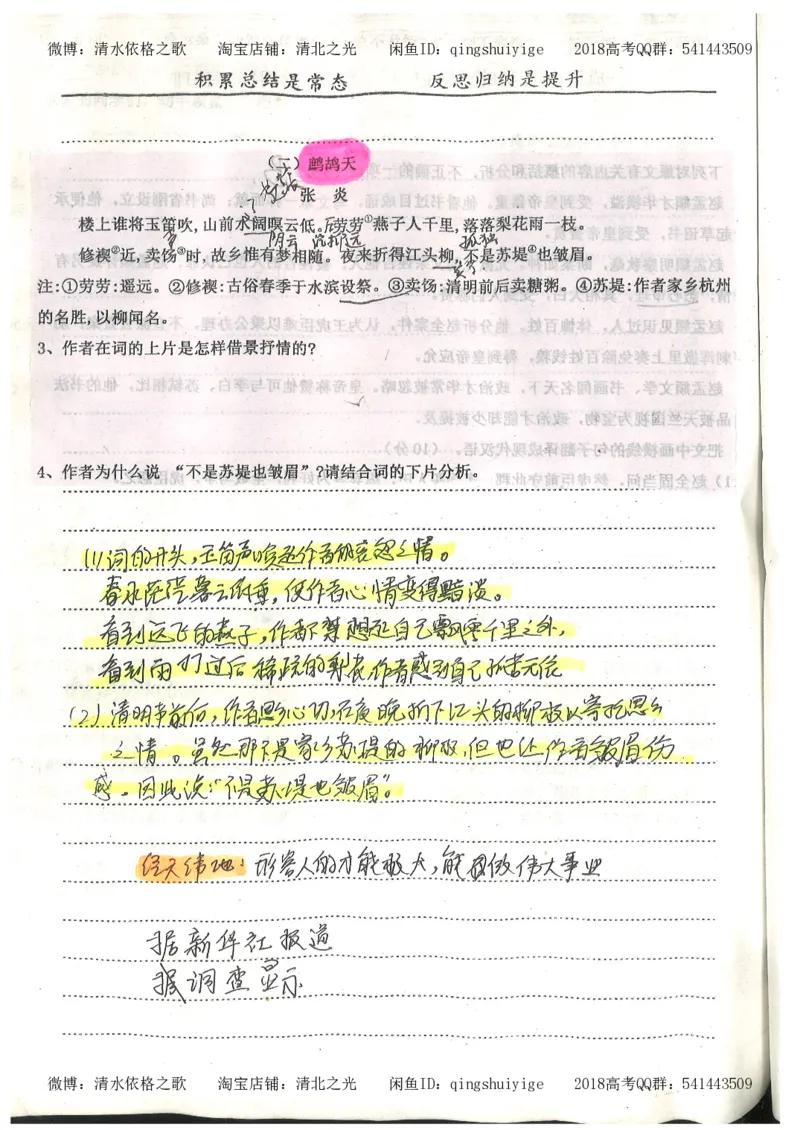 微博：清水依格之歌 淘宝店铺：清北之光 闲鱼ID：qingshuiyige 2018高考QQ群：541443509
积累总结是常态 反思归纳是提升
（一）鹧鸪天
张 炎
楼上谁将玉笛吹，山前水阔暝云低。劳劳①燕子人千里，落落梨花雨一枝。
阴云 沉 遥远 孤独
修禊②近，卖饧③时，故乡惟有梦相随。夜来折得江头柳，不是苏堤④也皱眉。
注：①劳劳：遥远。②修禊：古俗春季于水滨设祭。③卖饧：清明前后卖糖粥。④苏堤：作者家乡杭州
的名胜，以柳闻名。
3、作者在词的上片是怎样借景抒情的？
4、作者为什么说 “不是苏堤也皱眉”？请结合词的下片分析。
(1)词的开头，玉笛声唤起作者的哀怨之情。
春水茫茫暮云低重，使作者心情变得黯淡。
看到远飞的燕子，作者不禁想起自己飘零千里之外，
看到雨打过后稀疏的梨花作者感到自己孤苦无依
(2)清明节前后，作者思乡心切，在夜晚折下江头的柳枝以寄托思乡
之情。虽然那不是家乡苏堤的柳枝，但也让作者皱眉伤
感。因此说：“不是苏堤也皱眉”。
经天纬地：形容人的才能极大，能做伟大事业
据新华社报道
据调查显示
微博：清水依格之歌 淘宝店铺：清北之光 闲鱼ID：qingshuiyige 2018高考QQ群：541443509